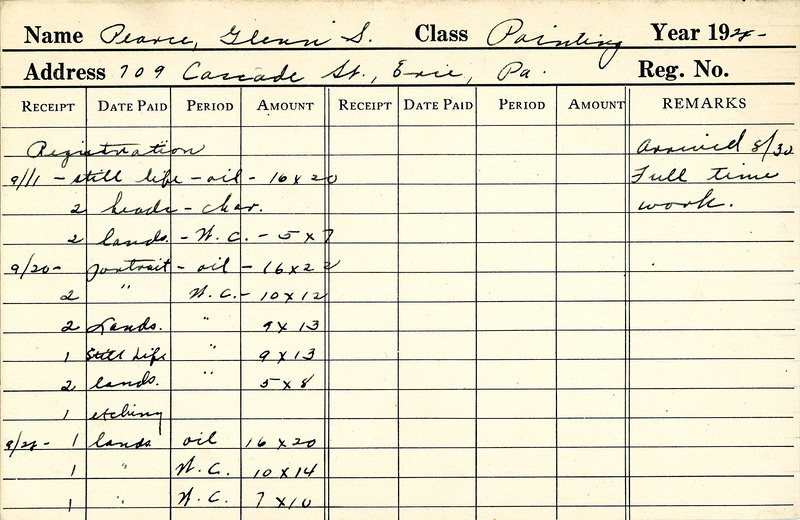 Name Pearce, Glenn S. Class Painting Year 1928-
Address 709 Cascade St., Erie, Pa. Reg. No.
RECEIPT DATE PAID PERIOD AMOUNT RECEIPT DATE PAID PERIOD AMOUNT REMARKS
Registration Arrived 8/30
9/11 - still life - oil - 16 x 20 Full time
2 heads - char. work.
2 lands. - W. C. - 5 x 7
9/20 - portrait - oil - 16 x 22
2 " W. C. - 10 x 12
2 Lands. " 9 x 13
1 Still Life " 9 x 13
2 lands. " 5 x 8
1 etching
9/28 - 1 lands oil 16 x 20
1 " W. C. 10 x 14
1 " W. C. 7 x 10